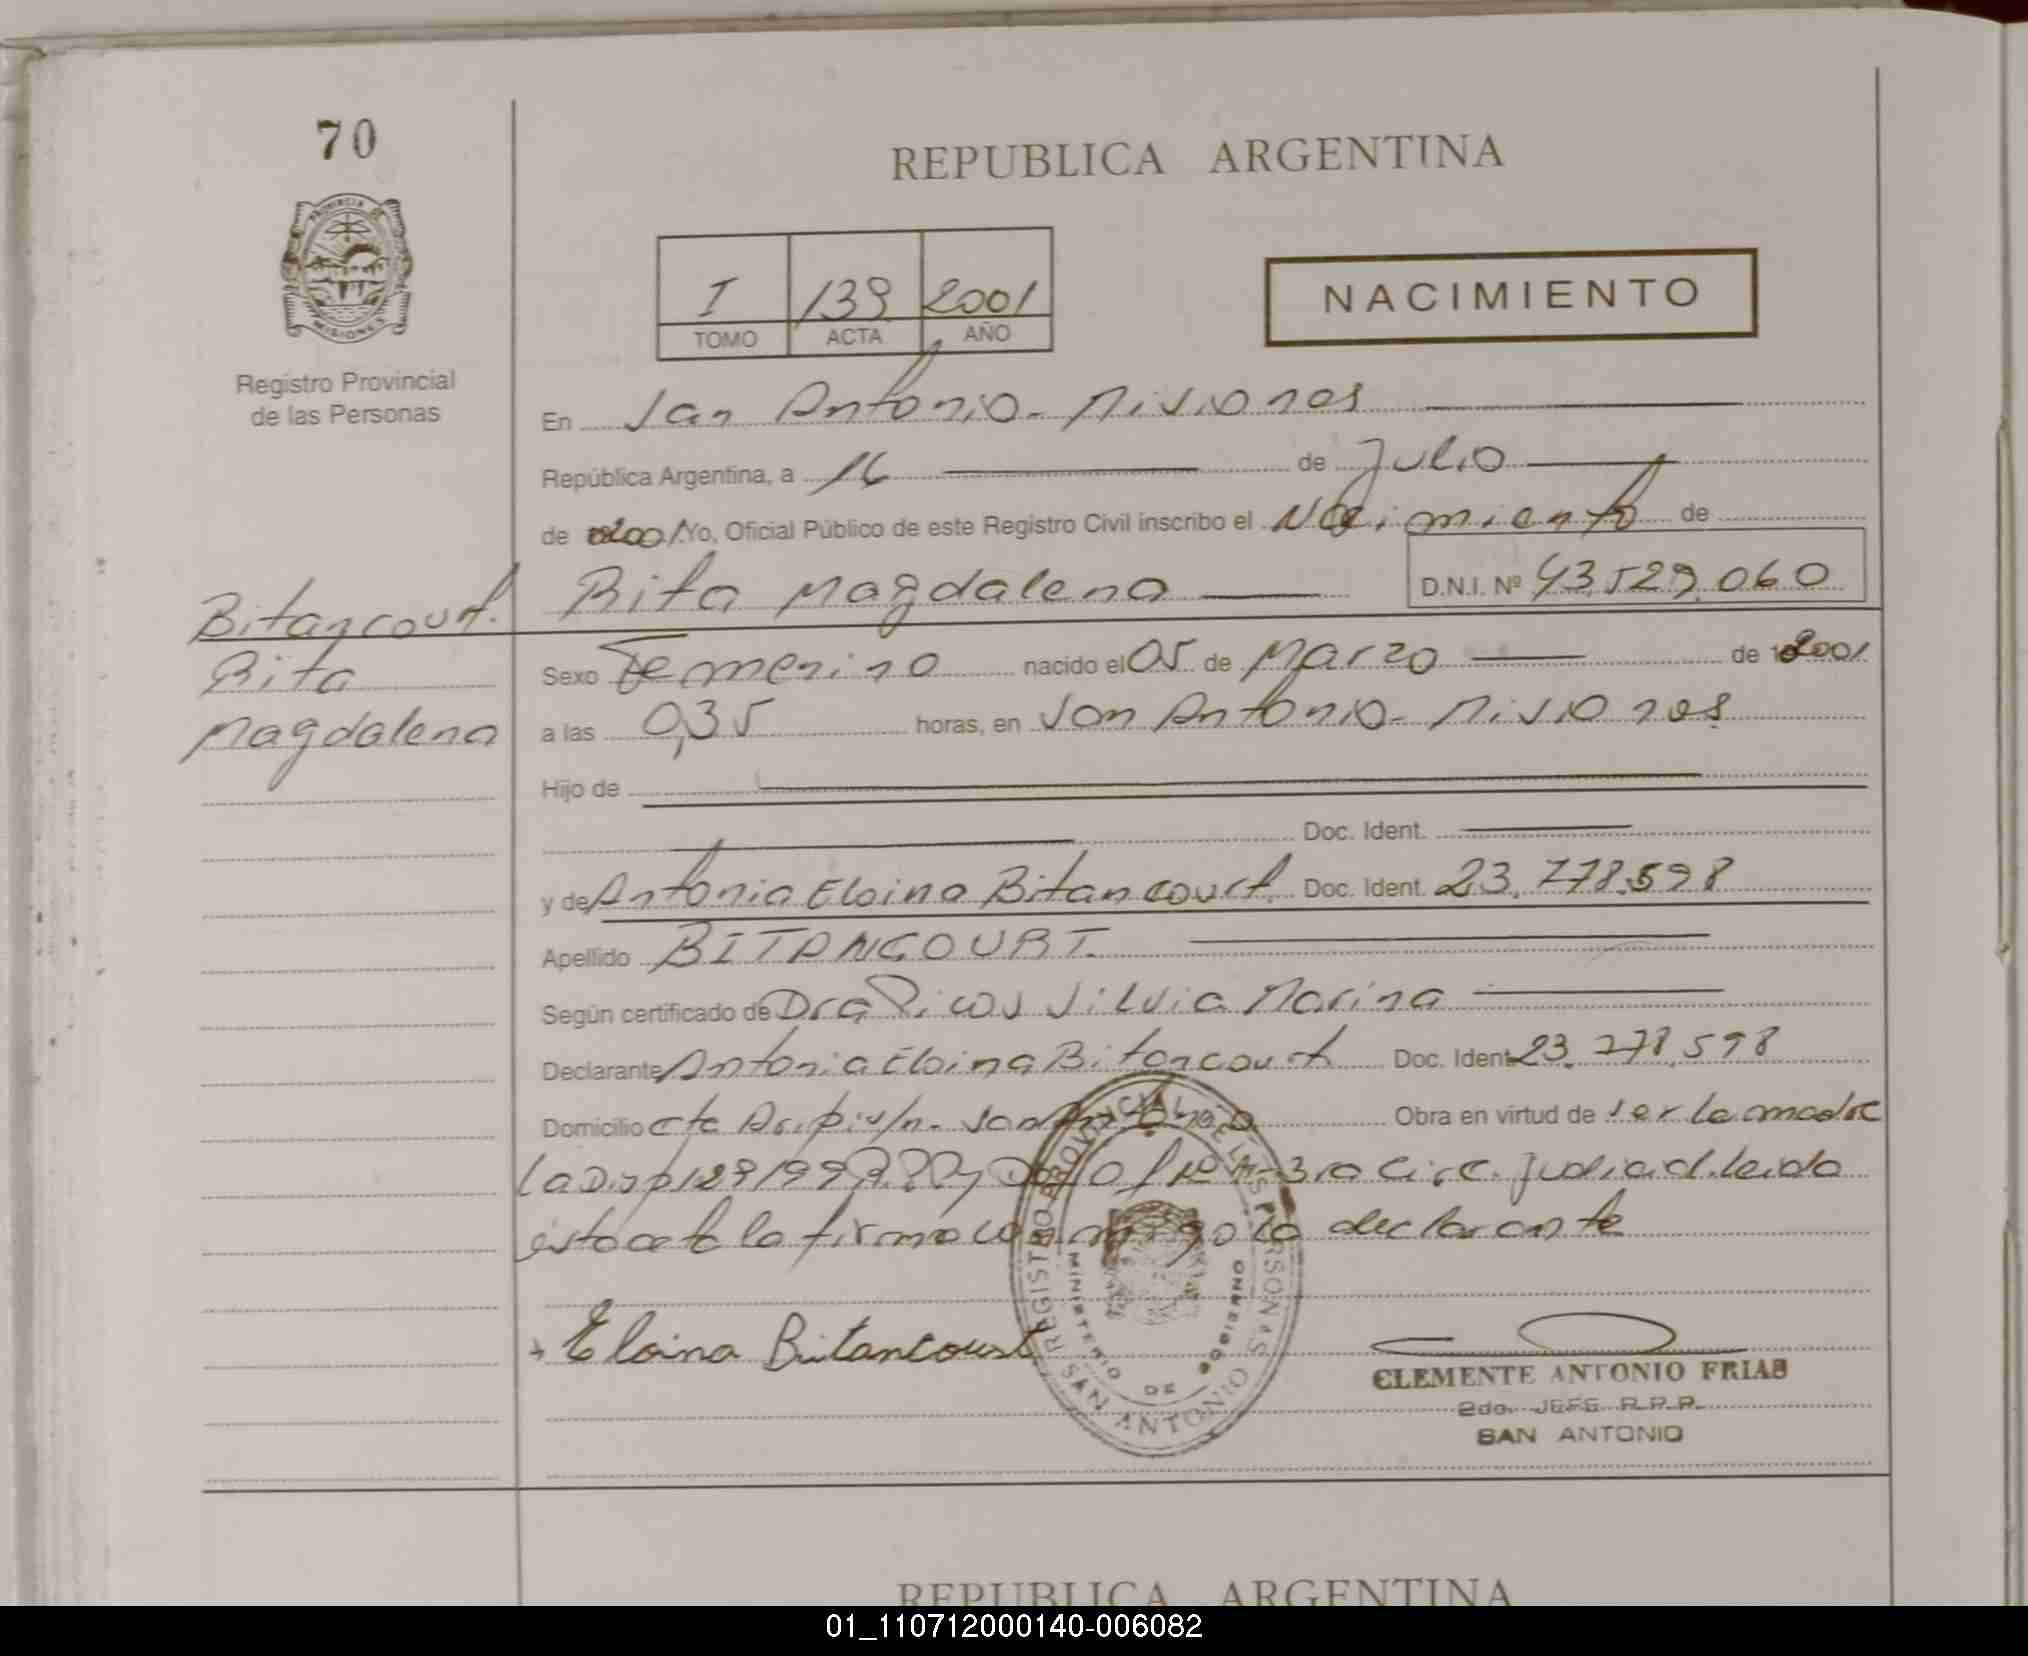 70
REPUBLICA ARGENTINA
PROVINCIA DE
MISIONES
Registro Provincial
de las Personas
I 139 2001
TOMO ACTA AÑO
NACIMIENTO
En San Antonio - Misiones
República Argentina, a 16 de Julio
de 2001 Yo, Oficial Público de este Registro Civil inscribo el Nacimiento de
Rita Magdalena D.N.I. Nº 43.529.060
Bitancourt.
Rita
Magdalena
Sexo Femenino nacido el 05 de Marzo de 2001
a las 0,35 horas, en San Antonio - Misiones
Hijo de
Doc. Ident.
y de Antonia Eloina Bitancourt. Doc. Ident. 23.778.598
Apellido BITANCOURT.
Según certificado de Dra Silvia Marina
Declarante Antonia Eloina Bitancourt Doc. Ident. 23.778.598
Domicilio San Antonio Obra en virtud de ser la madre
la Disp 129/99 3ra Circ. Judicial. leida
esta acta la firma conmigo la declarante
Eloina Bitancourt
REGISTRO PROVINCIAL DE LAS PERSONAS
MINISTERIO DE GOBIERNO
SAN ANTONIO
CLEMENTE ANTONIO FRIAS
2do. JEFE R.P.P.
SAN ANTONIO
REPUBLICA ARGENTINA
01_110712000140-006082